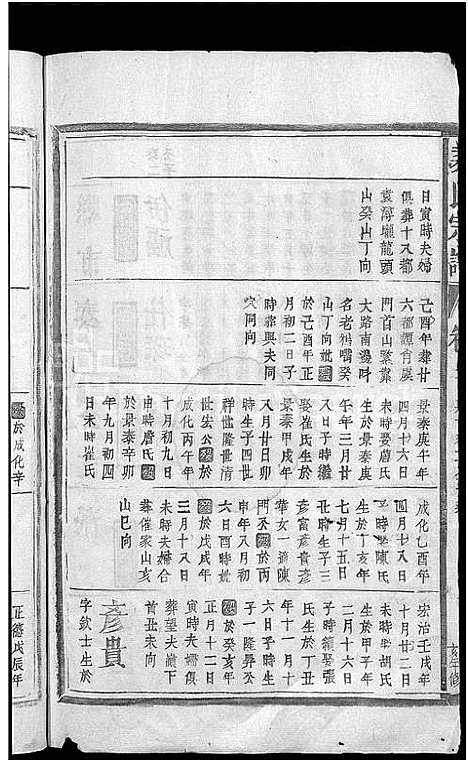 日寅時夫婦
俱葬十八都
袁潯壠龍頭
山癸山丁向
己酉年葬廿
六都譚肖虞
門首山聚靠
大路南湯時
名老鴉嘴癸
山丁向妣
於己酉年正
月初二日子
時葬與夫同
穴同向
景泰庚午年
四月十六日
未時娶蔚氏
生於景泰庚
午年三月廿
娶崔氏生於
景泰甲戌年
八月廿日卯
祥世隆世清
世宏公
成化丙午年
十月初九日
申時蔚氏
於景泰辛卯
年九月初四
日未時崔氏
成化乙酉年
四月十八日
時娶陳氏
生於丁亥年
七月十五日
丑時生子三
彥富彥貴彥
華女一適陳
門公於丙
申年八月初
六日酉時妣
於戊戌年
三月十八日
未時夫婦合
葬崔家山亥
山巳向
宏治壬戌年
十月廿二日
未時娶胡氏
生於甲子年
二月十六日
子時續娶張
氏生於丁丑
年十一月十
六日子時生
子一隆昇公
於癸亥年
正月十二日
寅時夫婦俱
葬望夫嶺下
首丑未向
彥貴
字欽士生於
於成化辛
正德戊辰年